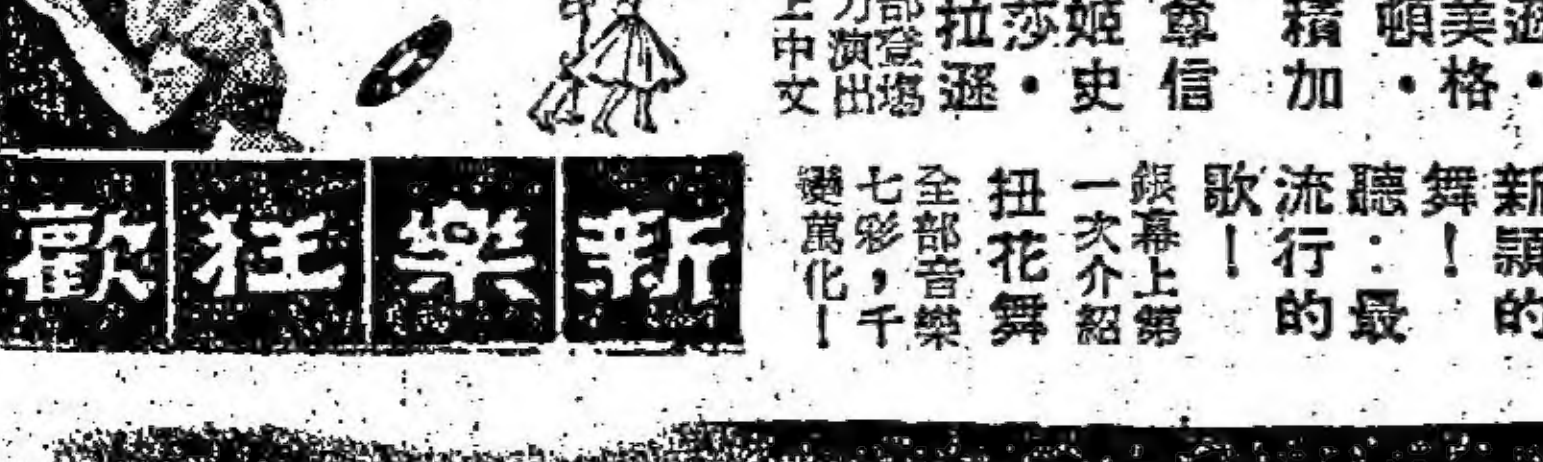 遜・
美格
頓・
積加
尊信
姬史
莎・
拉遜
部登場
力演出
上中文
新穎的
舞！
聽：最
流行的
歌！
銀幕上第
一次介紹
扭花舞
全部音樂
七彩，千
變萬化！
新樂狂歡